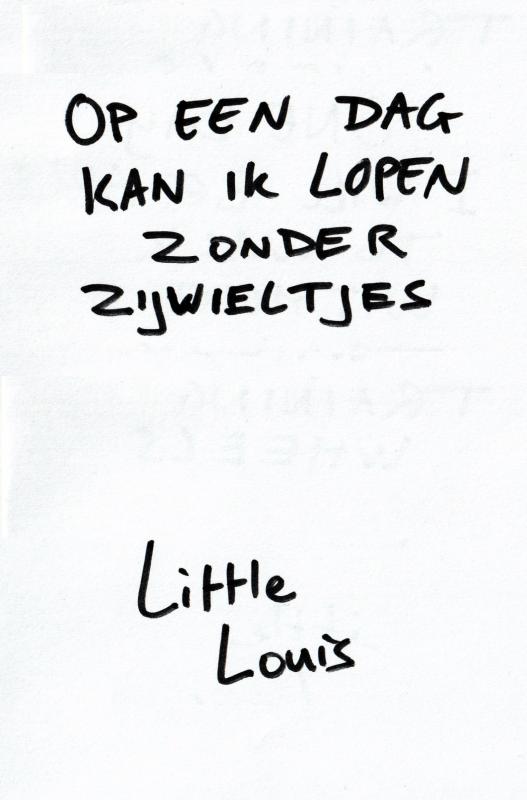 OP EEN DAG
KAN IK LOPEN
ZONDER
ZIJWIELTJES
Little
Louis